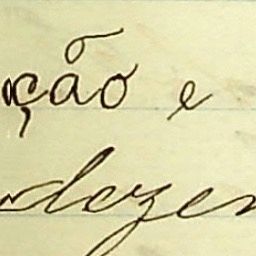 ção e
dezen